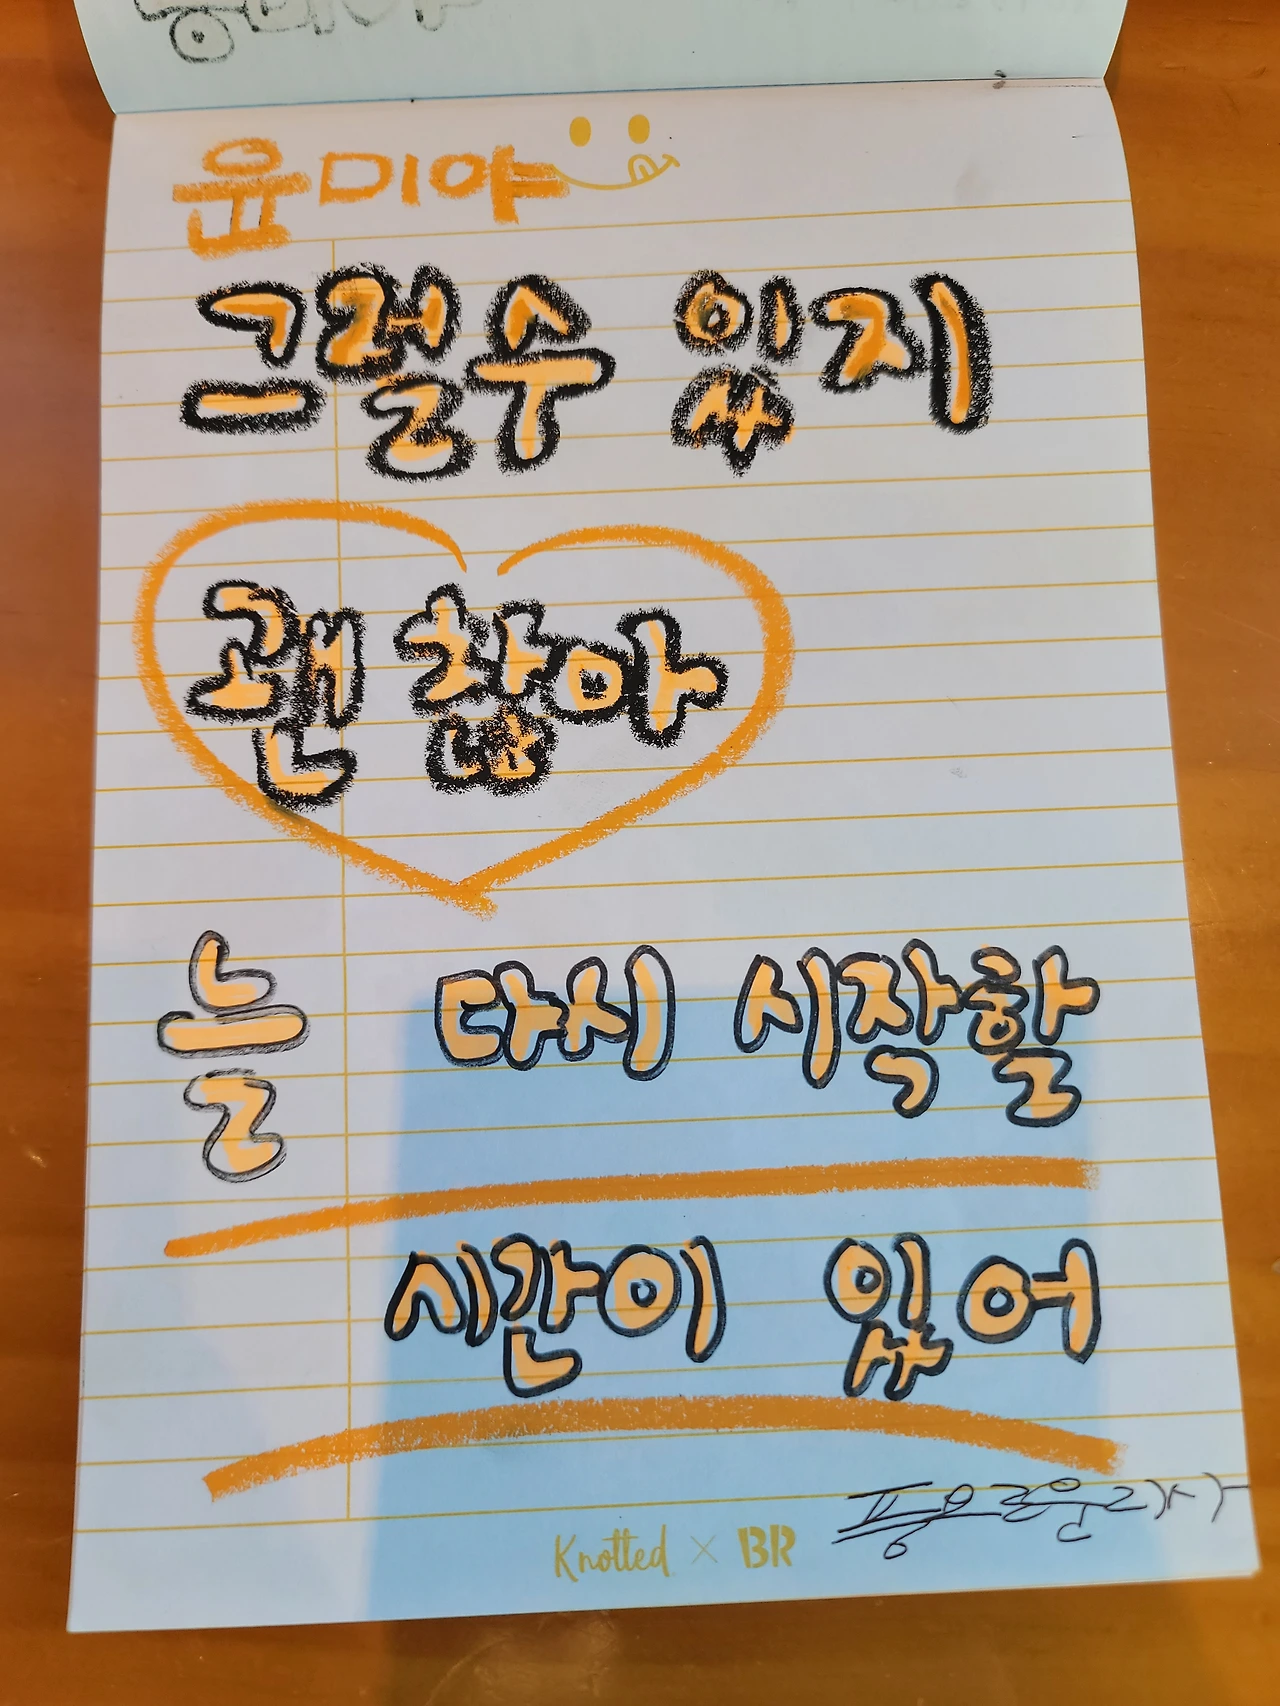 윤미야
그럴수 있지
괜찮아
늘 다시 시작할
시간이 있어
Knotted × BR